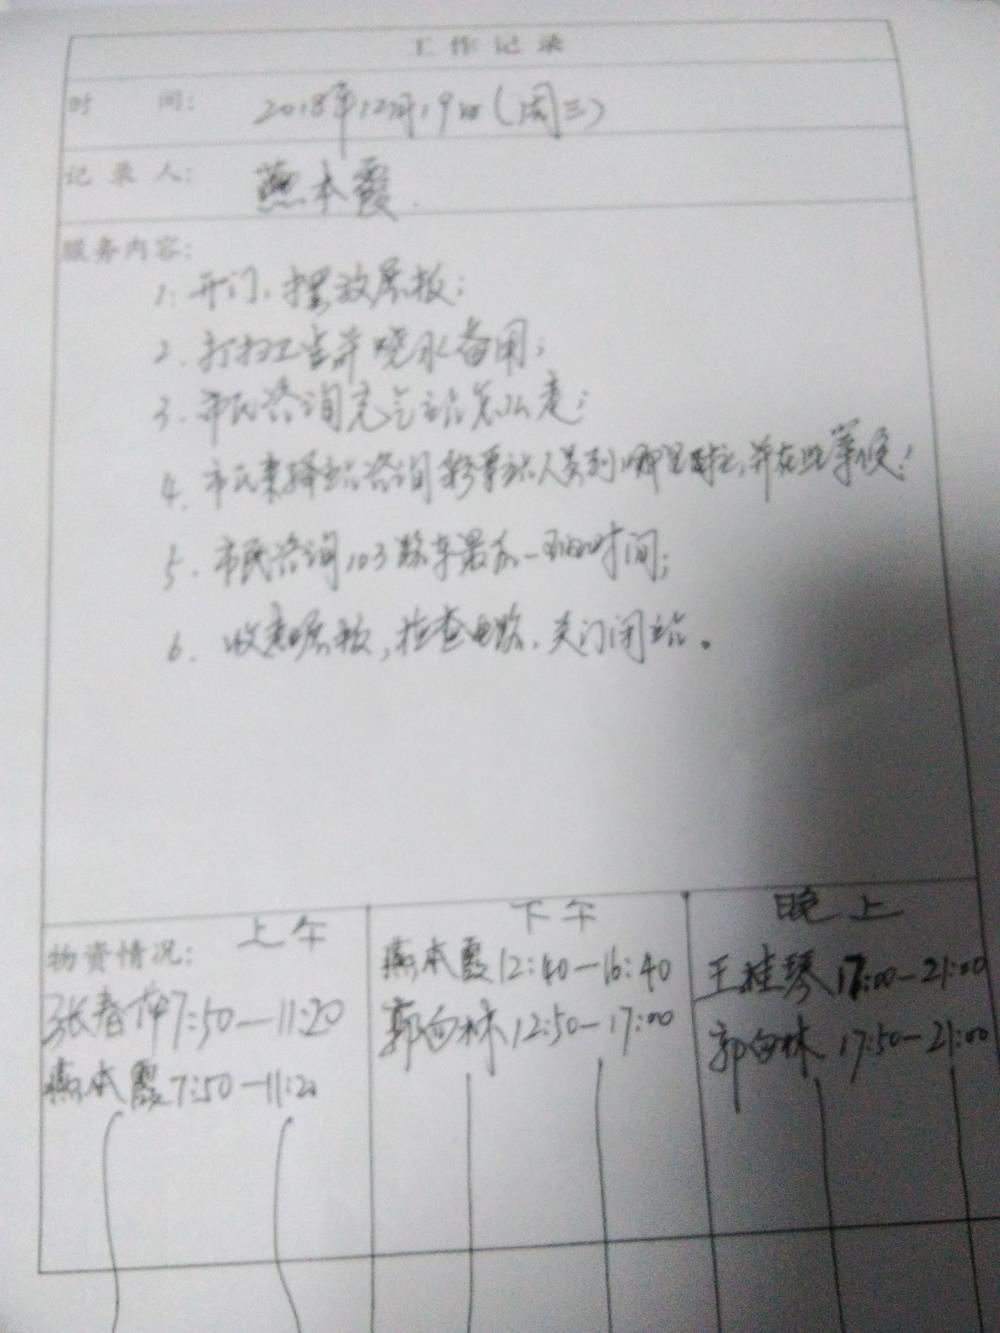 工作记录
时 间: 2018年12月19日(周三)
记录人: 燕本霞.
服务内容:
1. 开门、摆放展板;
2. 打扫卫生并烧水备用;
3. 市民咨询充气站怎么走;
4. 市民来驿站咨询彩票站人员到哪里啦,并在此等侯!
5. 市民咨询103路车最后一班时间;
6. 收惠展板,检查电路、关门闭站。
物资情况: 上午
张春 7:50—11:20
燕本霞 7:50—11:20
下午
燕本霞 12:40—16:40
郭向林 12:50—17:00
晚上
王桂琴 17:00—21:00
郭向林 17:50—21:00